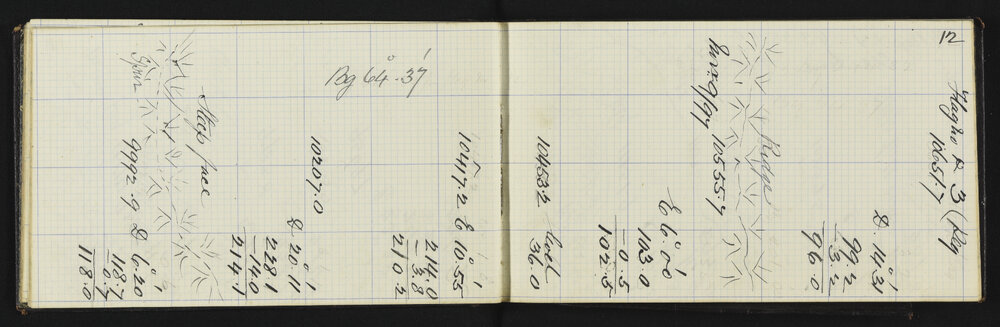 12
Flagno & 3 (Peg
10651.7
D. 14°.31'
99.2
- 3.2
96.0
Ridge
10555.7
E 6°.0'
103.0
- 0.5
102.5
10453.2 level
36.0
10417.2 E 10°.55'
214.0
- 3.8
210.2
Bg 64°.37'
10207.0
D 20°.11'
228.1
- 14.0
214.1
Steep face
Spur
9992.9 D 6°.20'
118.7
- 0.7
118.0